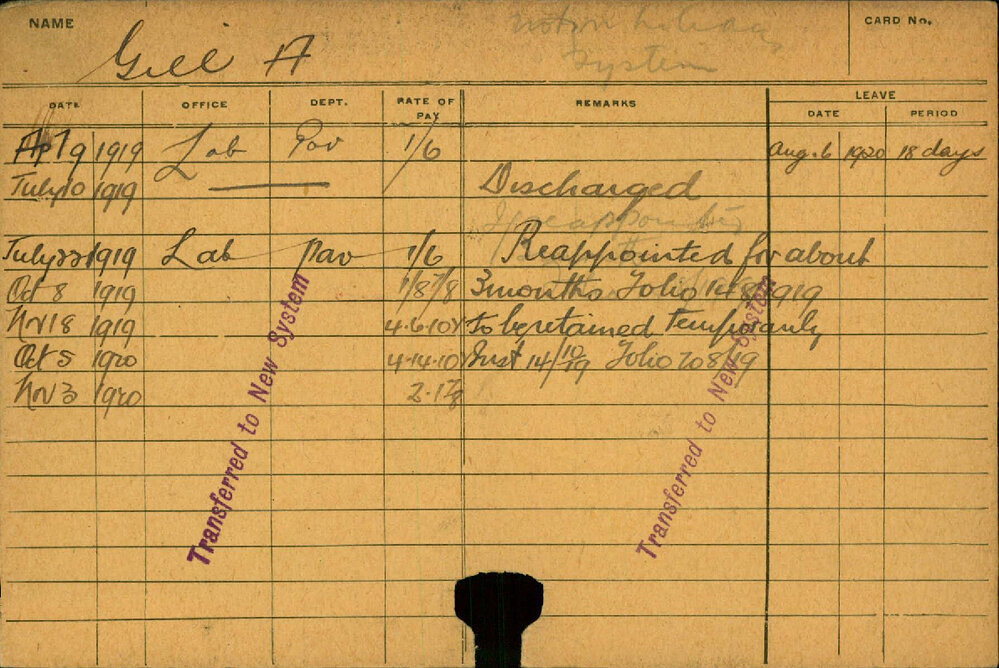 NAME Gill A CARD No.
not on holiday
System
DATE OFFICE DEPT. RATE OF PAY REMARKS LEAVE
DATE PERIOD
9 1919 Lab Pav 1/6 Aug. 6 1920 18 days
July 10 1919 Discharged
July 22 1919 Lab Pav 1/6 Reappointed for about
Oct 8 1919 1/8 7/8 3 months Folio 148/1919
Nov 18 1919 4.6.10 To be retained temporarily
Oct 5 1920 4.14.10 Inst 14/10/19 Folio 208/19
Nov 3 1920
Transferred to New System
Transferred to New System